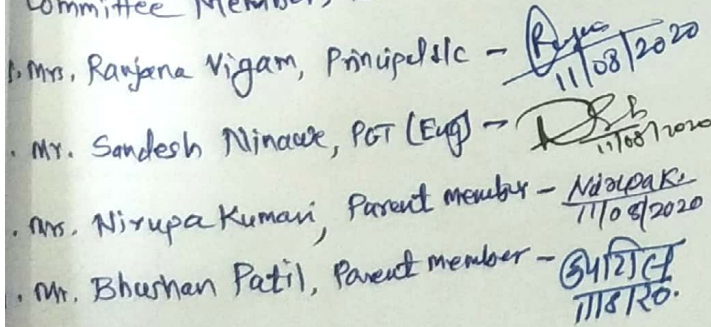 Committee Member
1. Mrs. Ranjana Nigam, Principal I/c - 11/08/2020
. Mr. Sandesh Ninawe, PGT (Eng) - 11/08/2020
. Mrs. Nirupa Kumari, Parent member - 11/08/2020
. Mr. Bhushan Patil, Parent member - 11/8/20.